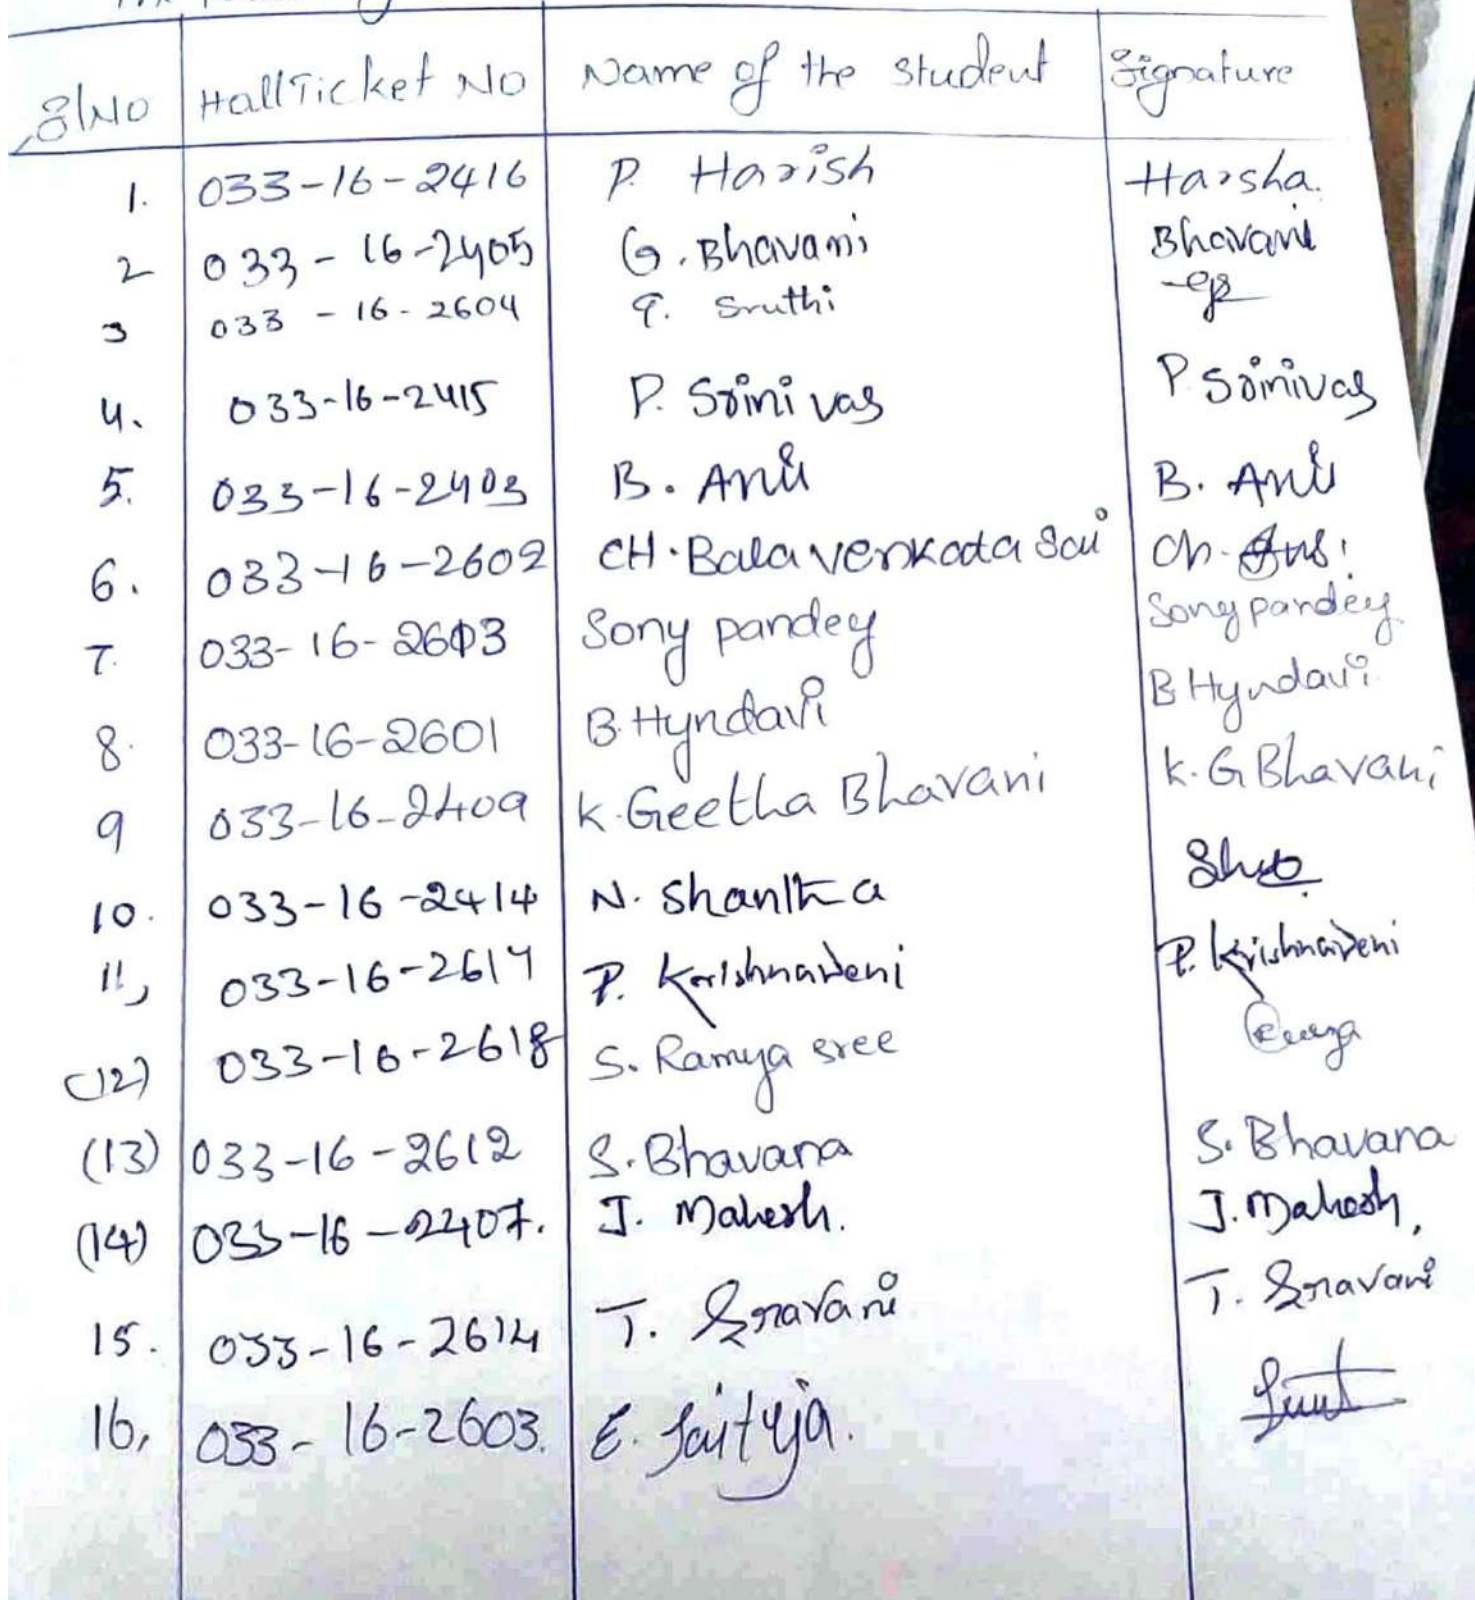 Sl No HallTicket No Name of the student Signature
1. 033-16-2416 P. Harish Harsha.
2 033-16-2405 G. Bhavani Bhavani
3 033-16-2604 Sruthi
4. 033-16-2415 P. Srinivas P. Srinivas
5. 033-16-2403 B. Anil B. Anil
6. 033-16-2602 CH. Balavenkata Sai Ch.
7. 033-16-2613 Sony pandey Sony pandey
8. 033-16-2601 B. Hyndavi B Hyndavi
9 033-16-2409 K. Geetha Bhavani K. G Bhavani
10. 033-16-2414 N. Shantha
11, 033-16-2617 P. Krishnaveni P. Krishnaveni
(12) 033-16-2618 S. Ramya sree
(13) 033-16-2612 S. Bhavana S. Bhavana
(14) 033-16-2407. J. Mahesh. J. Mahesh,
15. 033-16-2614 T. Sravani T. Sravani
16, 033-16-2603. E.